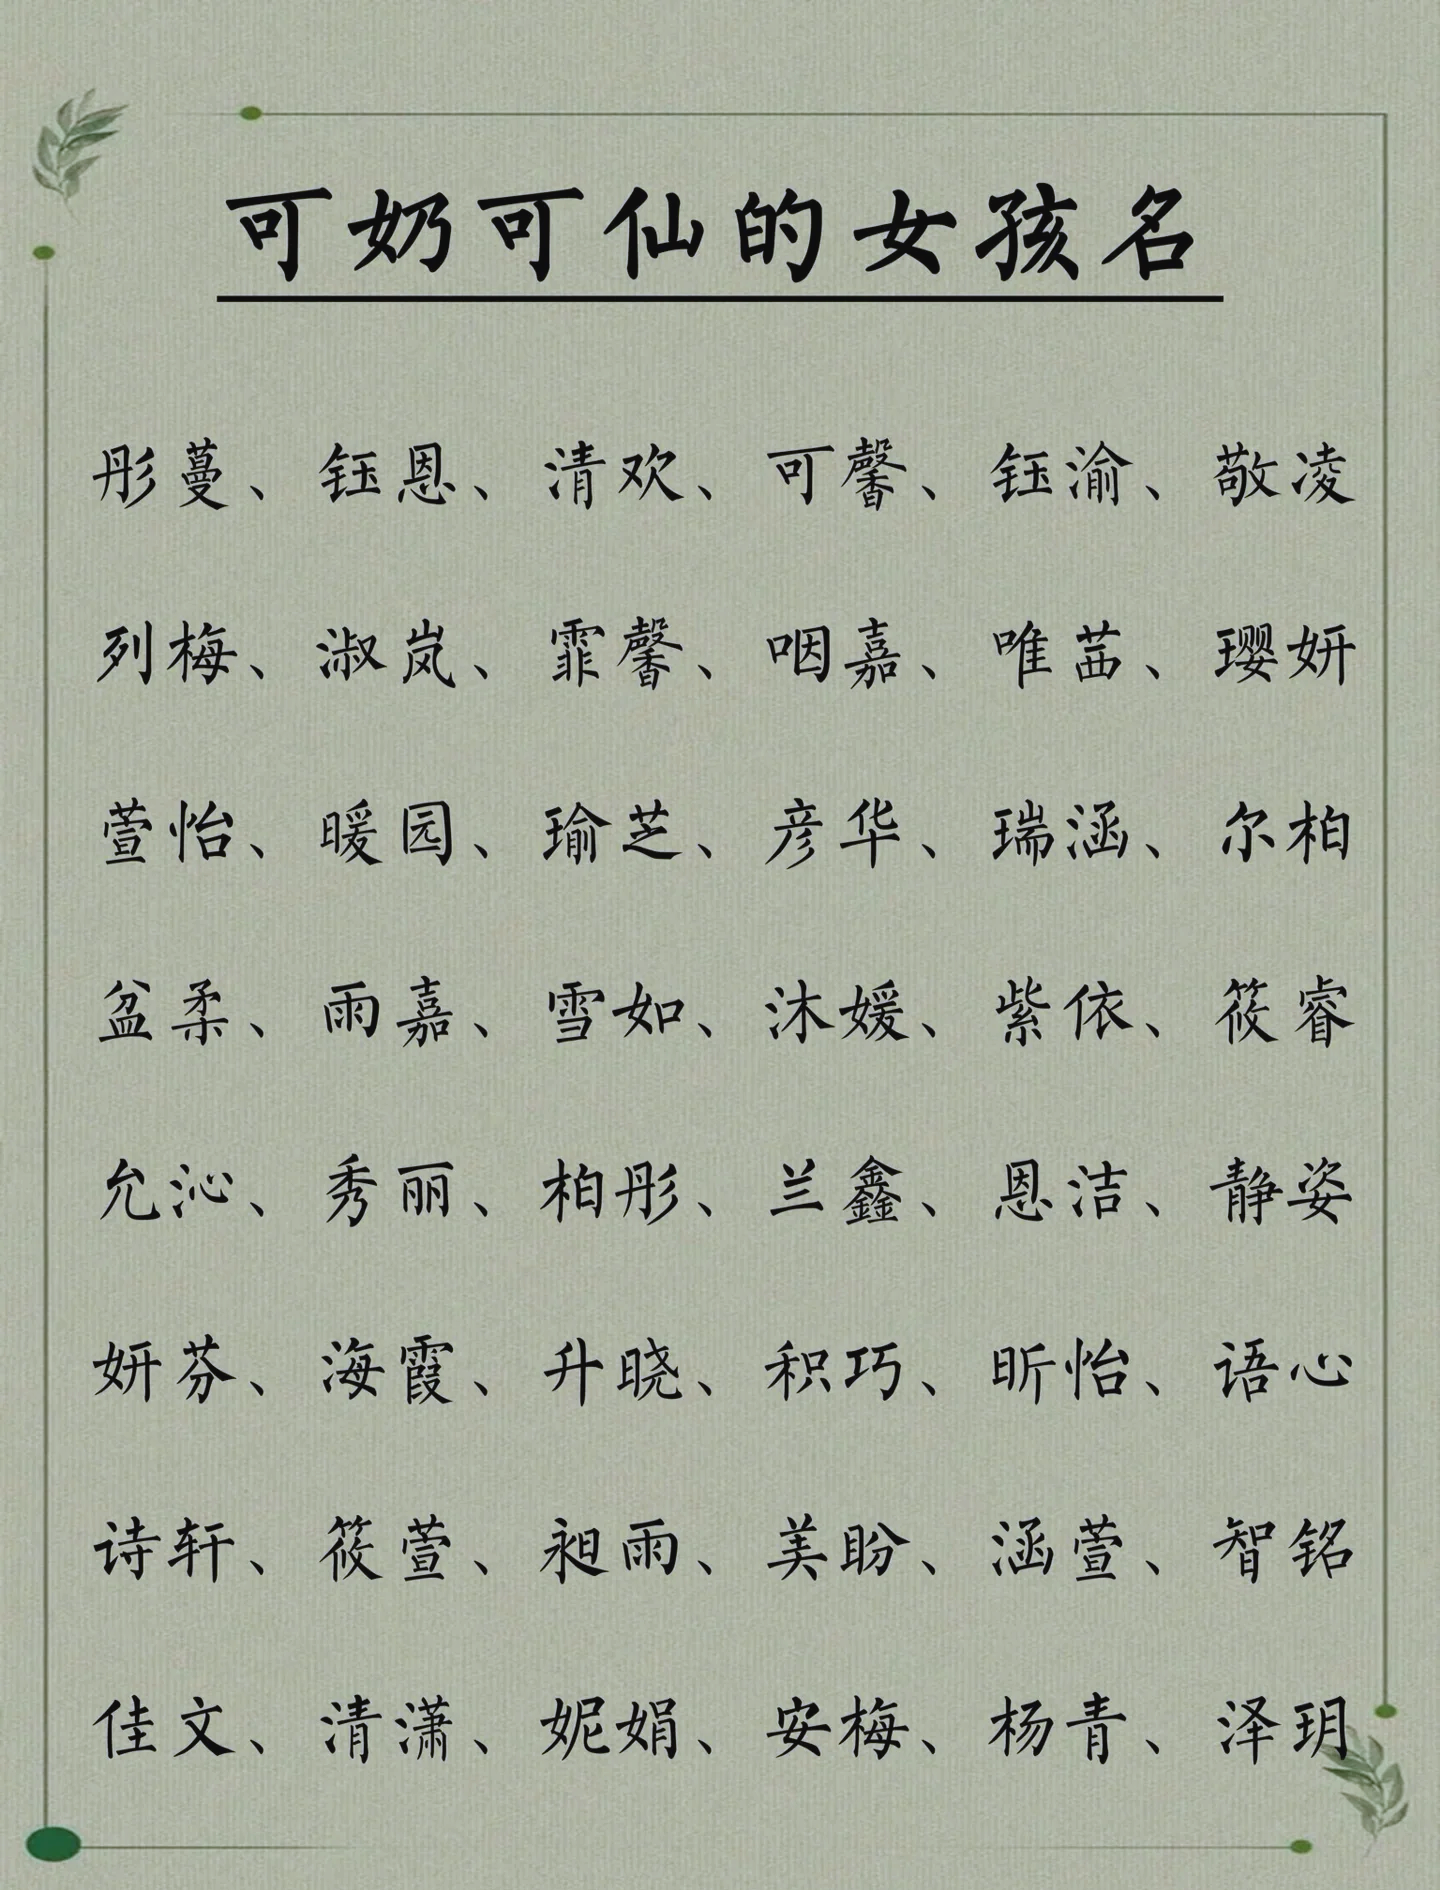 可奶可仙的女孩名
彤蔓、钰恩、清欢、可馨、钰渝、敬凌
列梅、淑岚、霏馨、咽嘉、唯茜、璎妍
萱怡、暖园、瑜芝、彦华、瑞涵、尔柏
盆柔、雨嘉、雪如、沐媛、紫依、筱睿
允沁、秀丽、柏彤、兰鑫、恩洁、静姿
妍芬、海霞、升晓、积巧、昕怡、语心
诗轩、筱萱、昶雨、美盼、涵萱、智铭
佳文、清潇、妮娟、安梅、杨青、泽玥